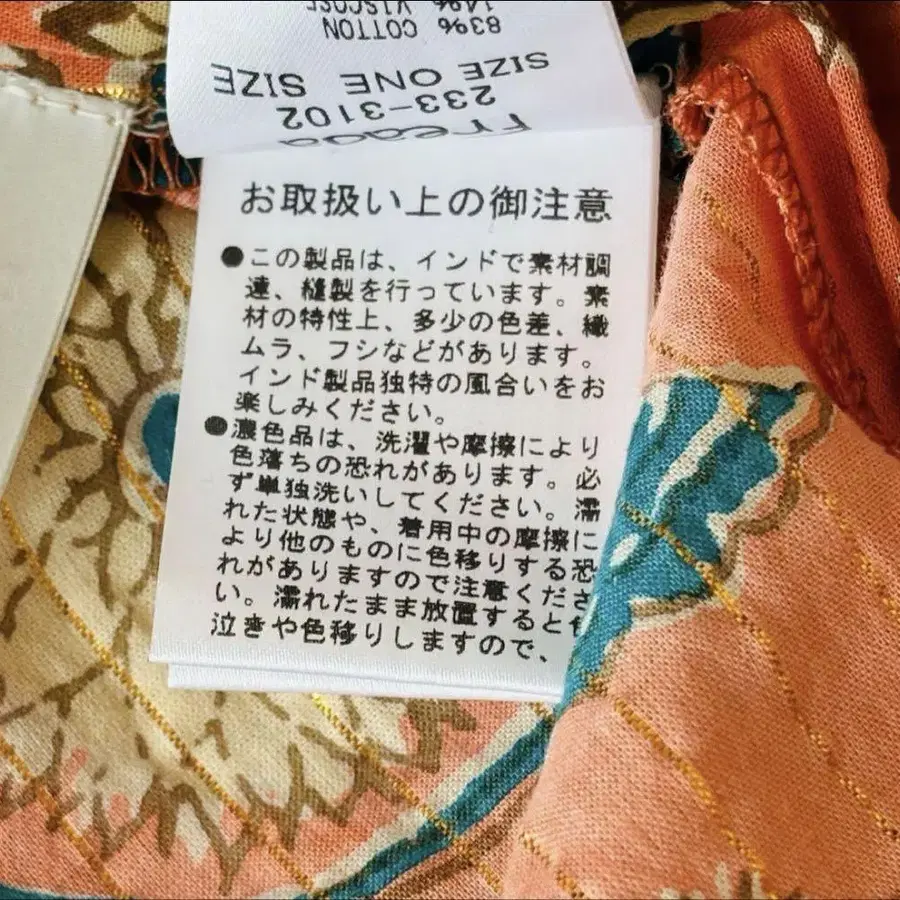 14% VISCOSE
83% COTTON
SIZE ONE SIZE
233-3102
Freada
お取扱い上の御注意
●この製品は、インドで素材調
達、縫製を行っています。素
材の特性上、多少の色差、織
ムラ、フシなどがあります。
インド製品独特の風合いをお
楽しみください。
●濃色品は、洗濯や摩擦により
色落ちの恐れがあります。必
ず単独洗いしてください。濡
れた状態や、着用中の摩擦に
より他のものに色移りする恐
れがありますので注意くださ
い。濡れたまま放置すると色
泣きや色移りしますので、